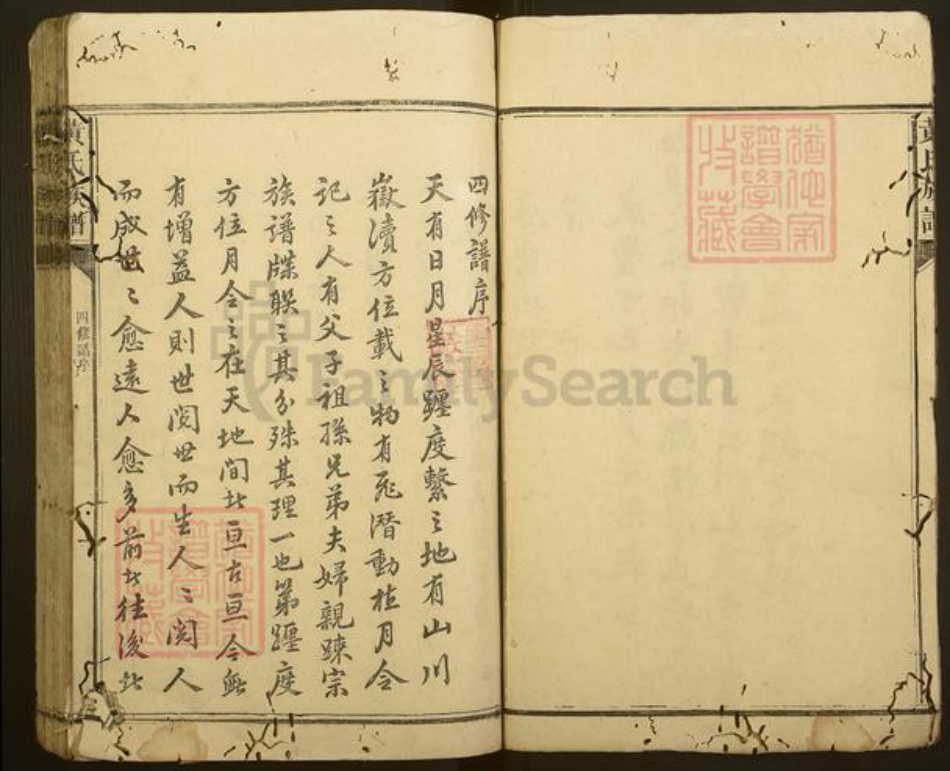 黃氏族譜
猶他家
譜學會
收藏
四修譜序
天有日月星辰躔度繫之地有山川
嶽瀆方位載之物有飛潛動植月令
記之人有父子祖孫兄弟夫婦親踈宗
族譜牒聯之其分殊其理一也第躔度
方位月令之在天地間此亘古亘今無
有增益人則世閱世而生人〻閱人
而成世〻愈遠人愈多前此往後此
黃氏族譜
四修譜序
猶他家
譜學會
收藏
FamilySearch